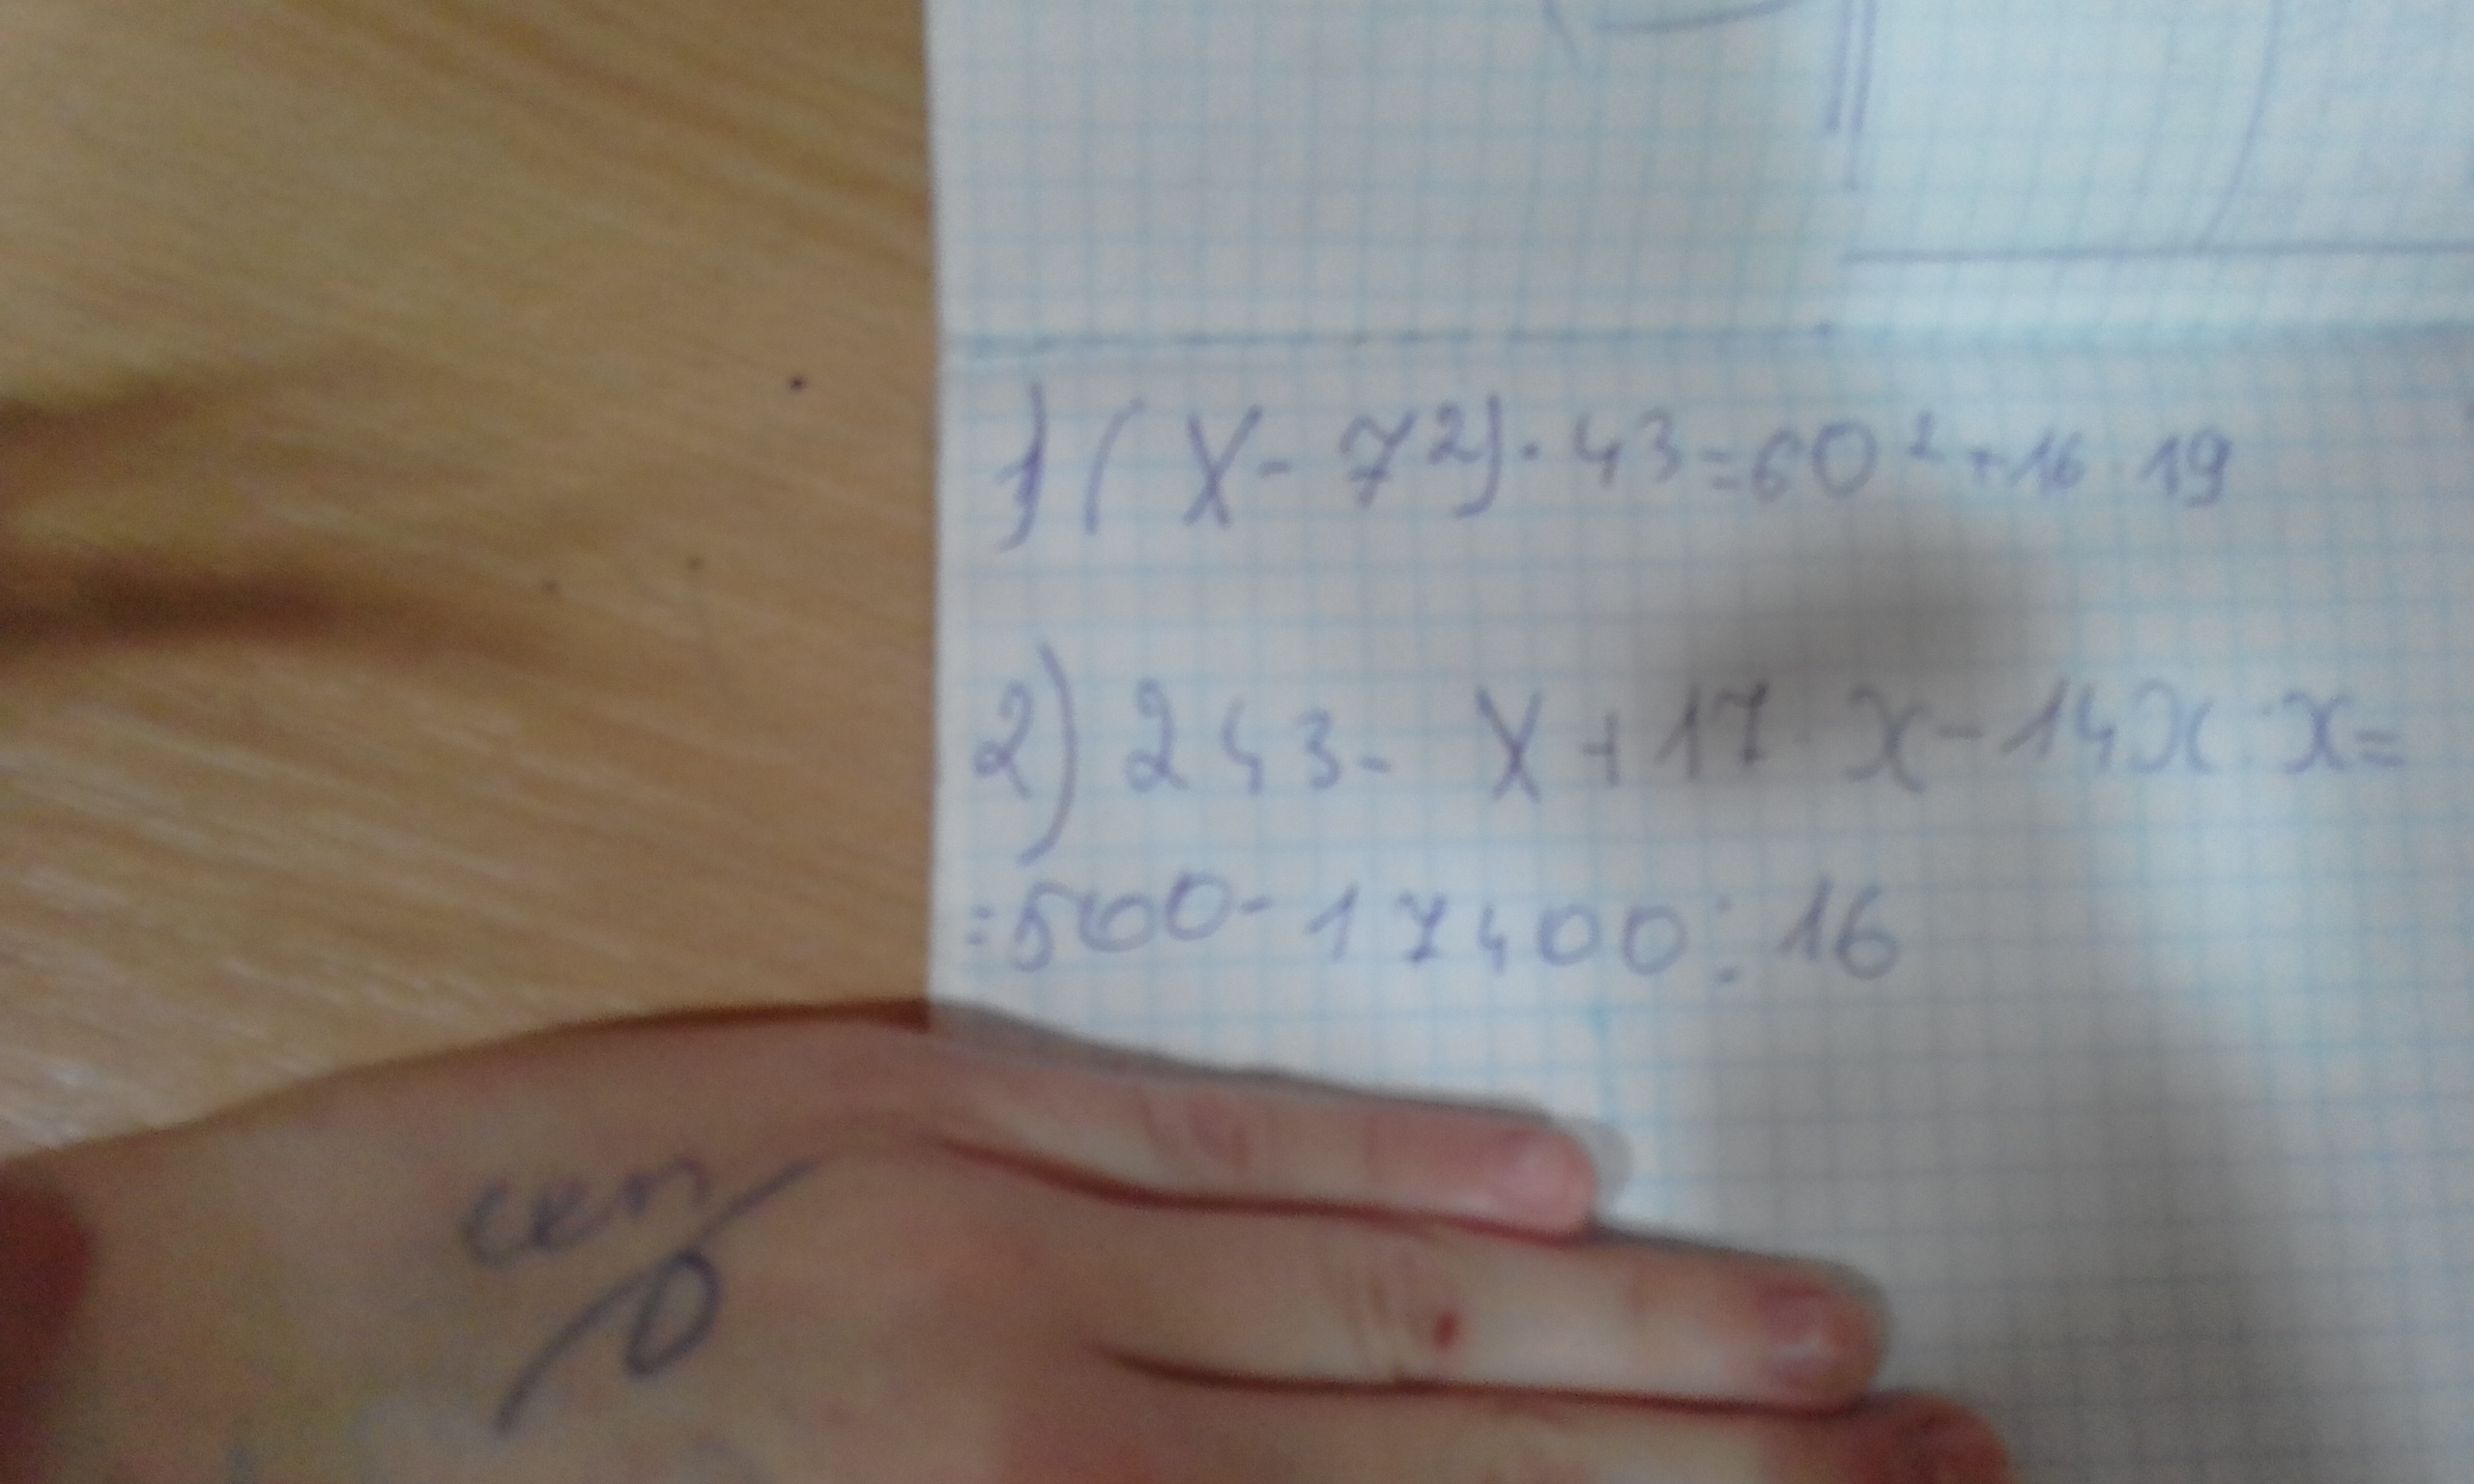 1) (X - 7²) · 43 = 60² + 16 · 19
2) 243 - X + 17 · x - 14x : x =
= 500 - 17400 : 16
скп